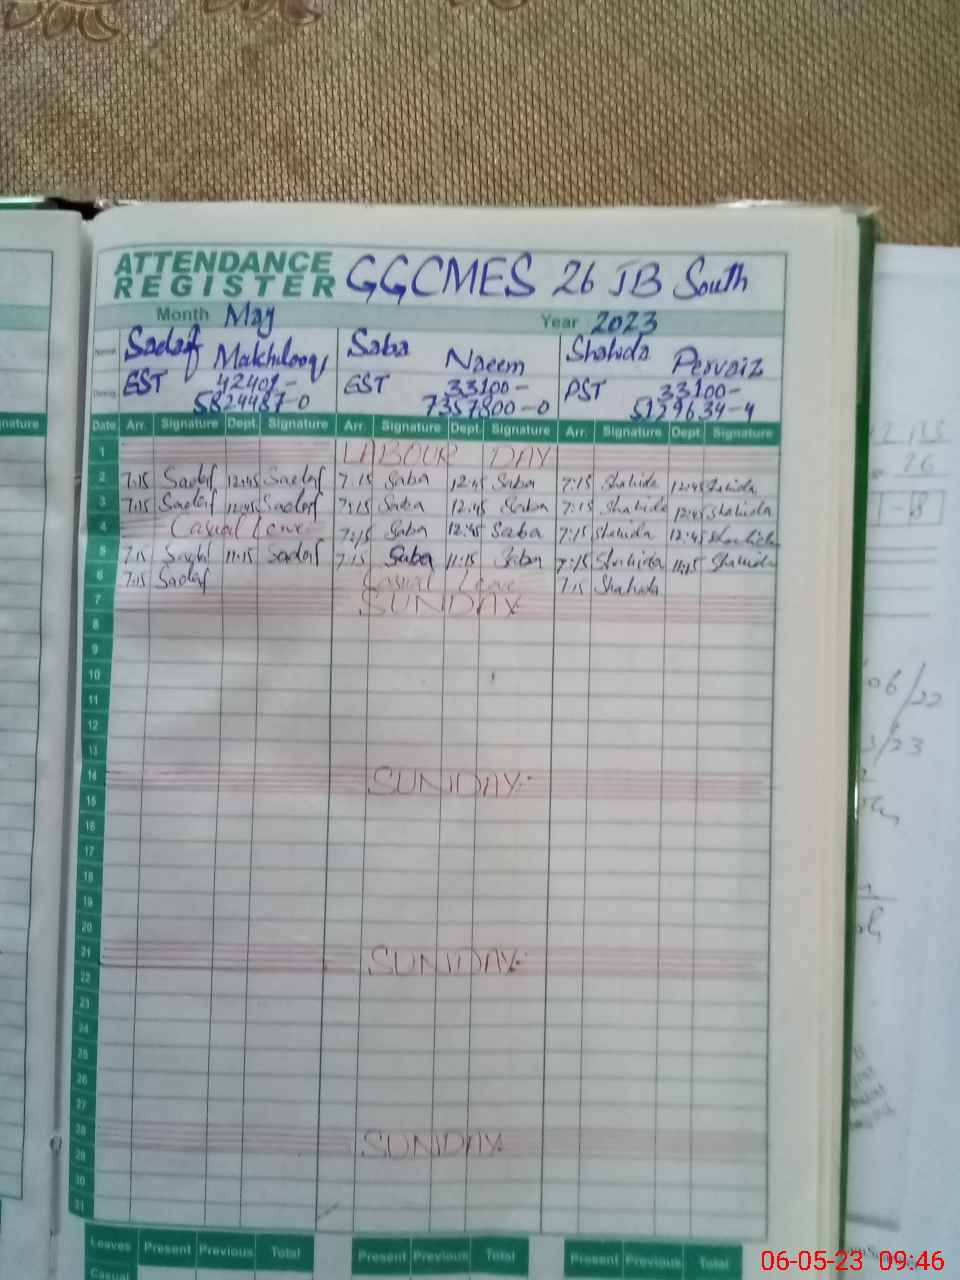 ATTENDANCE REGISTER GGCMES 26 JB South
Month May Year 2023
Name Sadaf Makhdooq Saba Naeem Shahida Pervaiz
EST 42401- EST 33100- PST 33100-
5824487-0 7357800-0 5129634-4
Date Arr. Signature Dept. Signature Arr. Signature Dept. Signature Arr. Signature Dept. Signature
1 LABOUR DAY
2 7:15 Sadaf 12:45 Sadaf 7:15 Saba 12:45 Saba 7:15 Shahida 12:45 Shahida
3 7:15 Sadaf 12:45 Sadaf 7:15 Saba 12:45 Saba 7:15 Shahida 12:45 Shahida
4 Casual Leave 7:15 Saba 12:45 Saba 7:15 Shahida 12:45 Shahida
5 7:15 Sadaf 11:15 Sadaf 7:15 Saba 11:15 Saba 7:15 Shahida 11:15 Shahida
6 7:15 Sadaf Casual Leave 7:15 Shahida
7 SUNDAY
8
9
10
11
12
13
14 SUNDAY
15
16
17
18
19
20
21 SUNDAY
22
23
24
25
26
27
28 SUNDAY
29
30
31
Leaves Present Previous Total Present Previous Total Present Previous Total
Casual
06-05-23 09:46